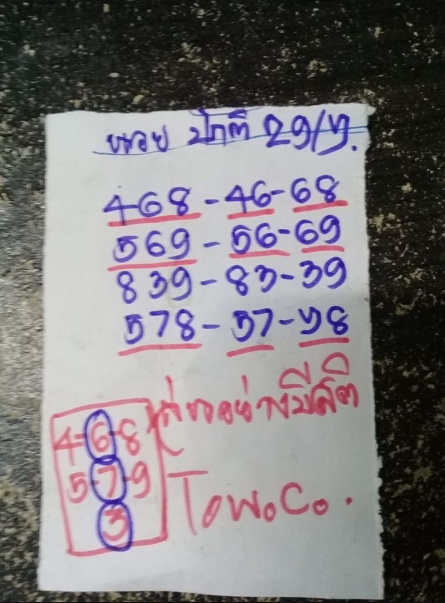 ฮอย ปกติ 29/ท.
468-46-68
569-56-69
839-83-39
578-57-78
4-6-8
5-7-9
3
เล่นอย่างมีสติ
Towo.Co.